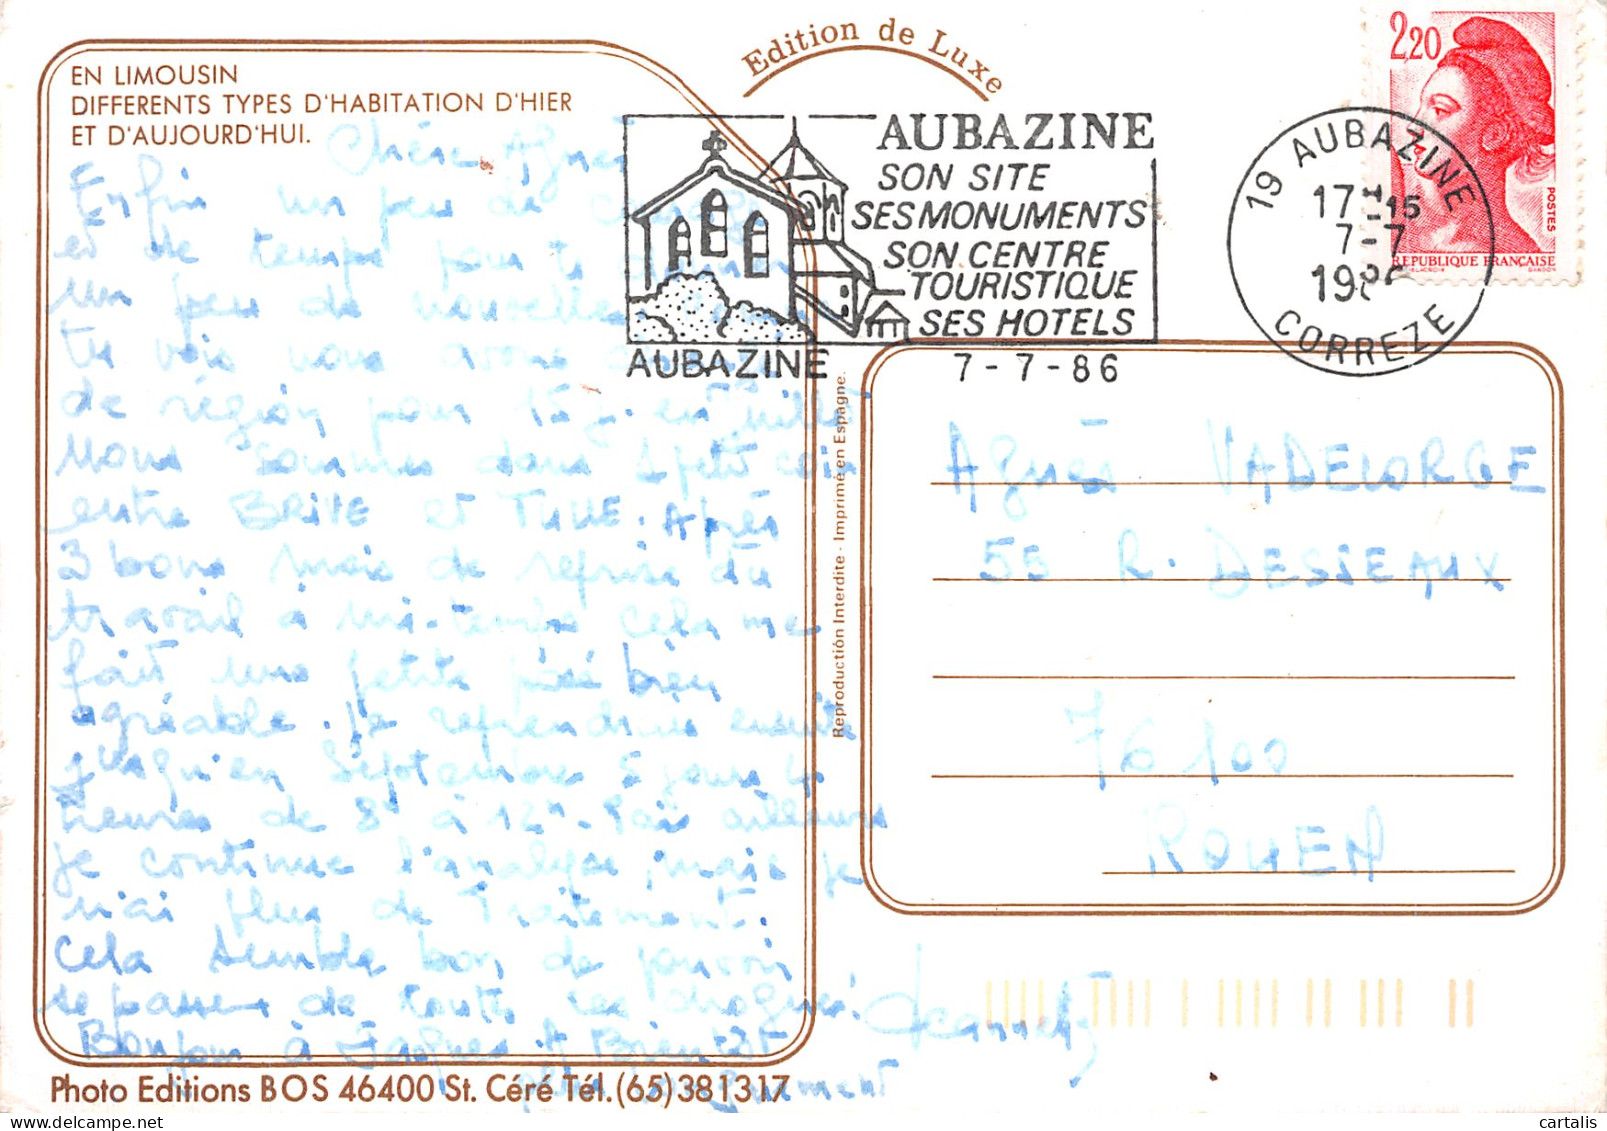 Edition de Luxe
EN LIMOUSIN
DIFFERENTS TYPES D'HABITATION D'HIER
ET D'AUJOURD'HUI.
Chère Agnès
Enfin un peu de
et de temps pour te donner
un peu de nouvelles
tu vois nous avons
de région pour 15 j. en juillet
Nous sommes dans 1 petit coin
entre BRIVE et TULLE. Après
3 bons mois de reprise du
travail à mi-temps cela me
fait une petite bien
agréable. Je reprendrai ensuite
jusqu'en Septembre 5 jours 4
heures de 8h à 12h. Par ailleurs
je continue l'analyse, mais je
n'ai plus de Traitement.
Cela semble bon de pouvoir
se passer de toutes ces drogues.
Bonjour à Jacques. A Bientôt
plus longuement
Jeannette
Photo Editions BOS 46400 St. Céré Tél. (65) 381317
AUBAZINE
SON SITE
SES MONUMENTS
SON CENTRE
TOURISTIQUE
SES HOTELS
AUBAZINE
7-7-86
19 AUBAZINE
17H15
7-7
1986
CORREZE
2,20
POSTES
REPUBLIQUE FRANÇAISE
Reproduction Interdite - Imprimé en Espagne.
Agnès VADELORGE
55 R. DESSEAUX
76100
ROUEN
cartalis
https://www.delcampe.net